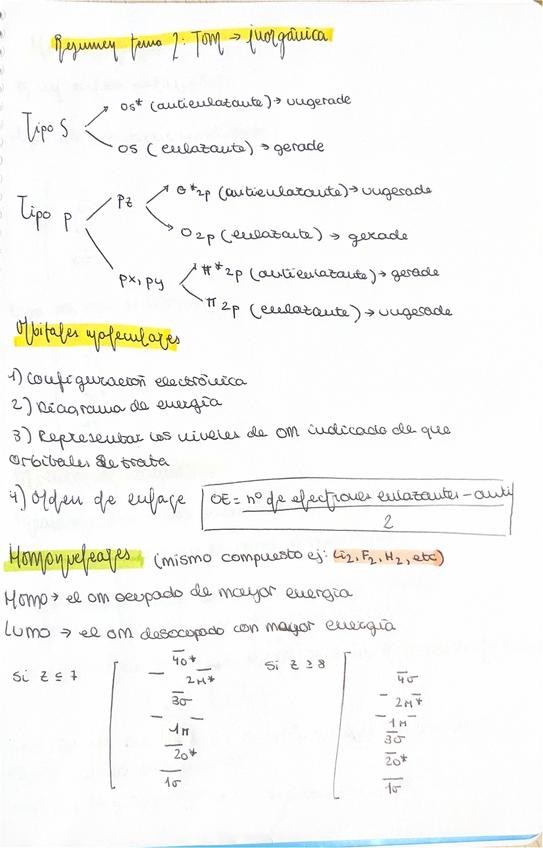 Resumen tema 2: TOM → inorgánica
Tipo S
σs* (antienlazante) → ungerade
σs (enlazante) → gerade
Tipo p
pz
σ*2p (antienlazante) → ungerade
σ2p (enlazante) → gerade
px, py
π*2p (antienlazante) → gerade
π 2p (enlazante) → ungerade
Orbitales moleculares
1) Configuración electrónica
2) Diagrama de energía
3) Representar los niveles de OM indicado de que
orbitales se trata
4) Orden de enlace OE = nº de electrones enlazantes - anti / 2
Homonucleares (mismo compuesto ej: Li2, F2, H2, etc)
Homo → el om ocupado de mayor energía
Lumo → el om desocupado con mayor energía
Si Z ≤ 7
4σ*
2π*
3σ
1π
2σ*
1σ
Si Z ≥ 8
4σ
2π*
1π
3σ
2σ*
1σ